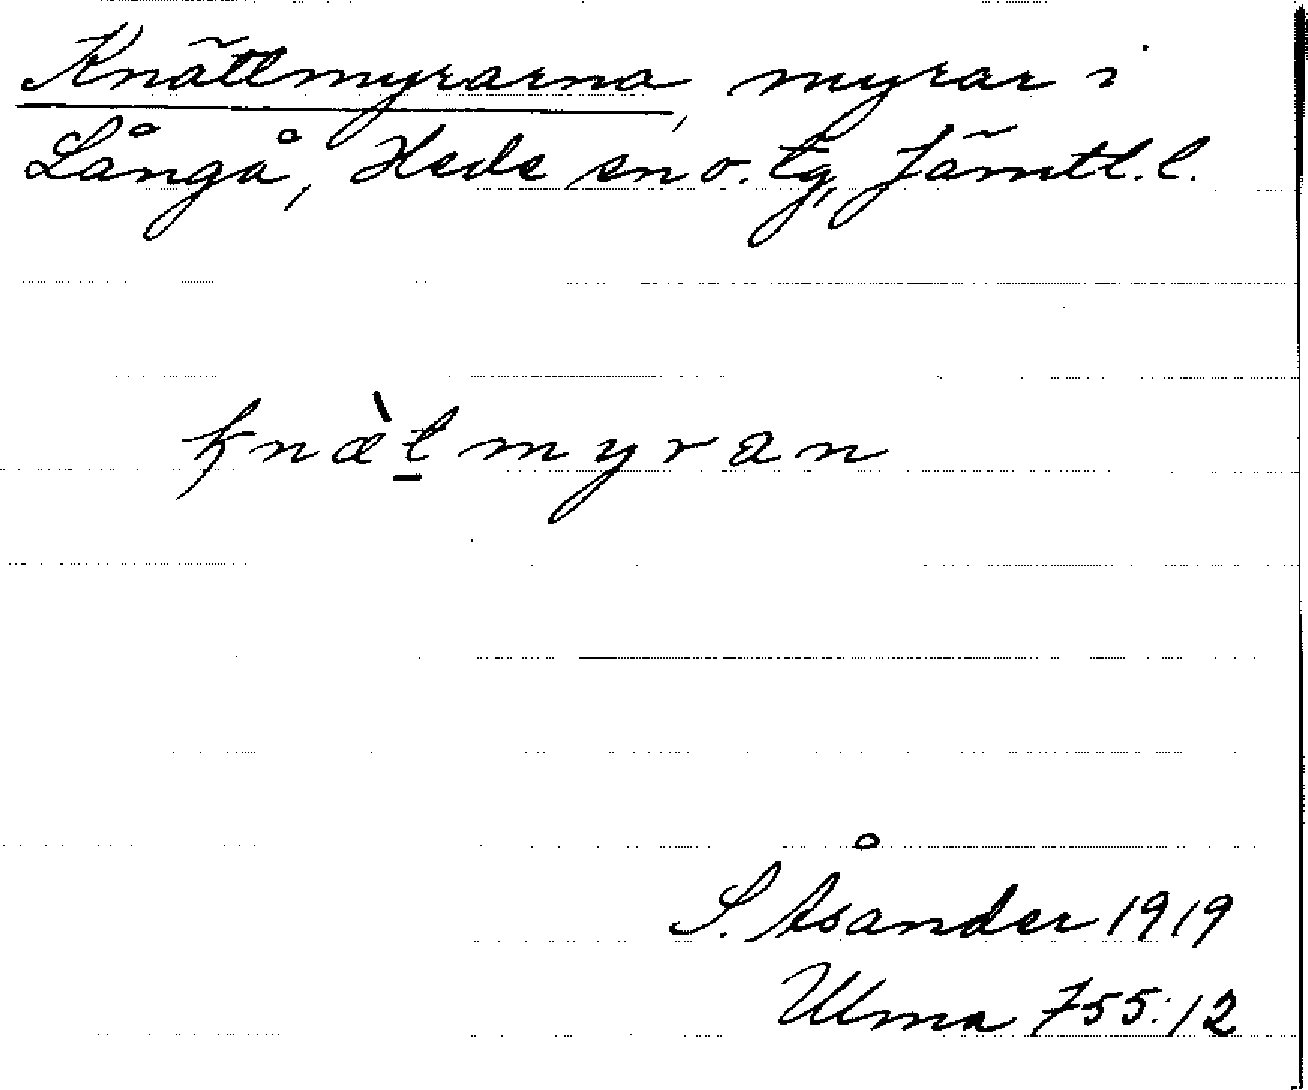 Knättmyrarna, myrar i
Långå, Hede sn o. tg, Jämtl. l.
knæ̀t̠myran
S. Åsander 1919
Ulma 755:12